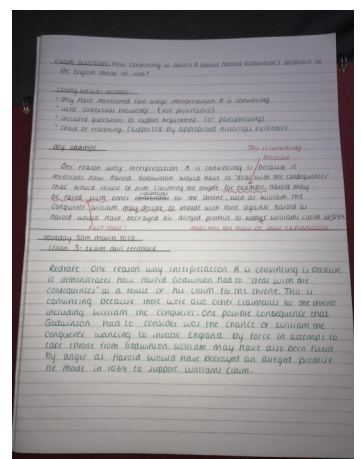 Exam Question: How convincing is source A about Harold Godwinson's accession to
the English throne in 1066?
Strong answer includes:
- only have mentioned two ways interpretation A is convincing.
- used contextual knowledge.
- included quotations to support argument. (or paraphrasing)
- chain of reasoning (supported by appropriate historical evidence).
My attempt
This is convincing
because
One reason why interpretation A is convincing is because it
mentions how Harold Godwinson would have to "deal with the consequences"
that would result of him claiming the throne, for example, Harold may
be faced with other claimants for the throne, such as William the
Conquerer. William may decide to invade with force against Harold as
Harold would have betrayed an alleged promise to support William claim
past tense!
Monday 30th March 2020
Lesson 3: Exam and feedback
Redraft: One reason why interpretation A is convincing is because
it demonstrates how Harold Godwinson had to "deal with the
consequences" as a result of his claim for the throne. This is
convincing because there were also other claimants for the throne
including William the Conquerer. One possible consequence that
Godwinson had to consider was the chance of William the
Conquerer wanting to invade England by force in attempt to
take throne from Godwinson. William may have also been fueled
by anger as Harold would have betrayed an alleged promise
he made in 1064 to support Williams claim.